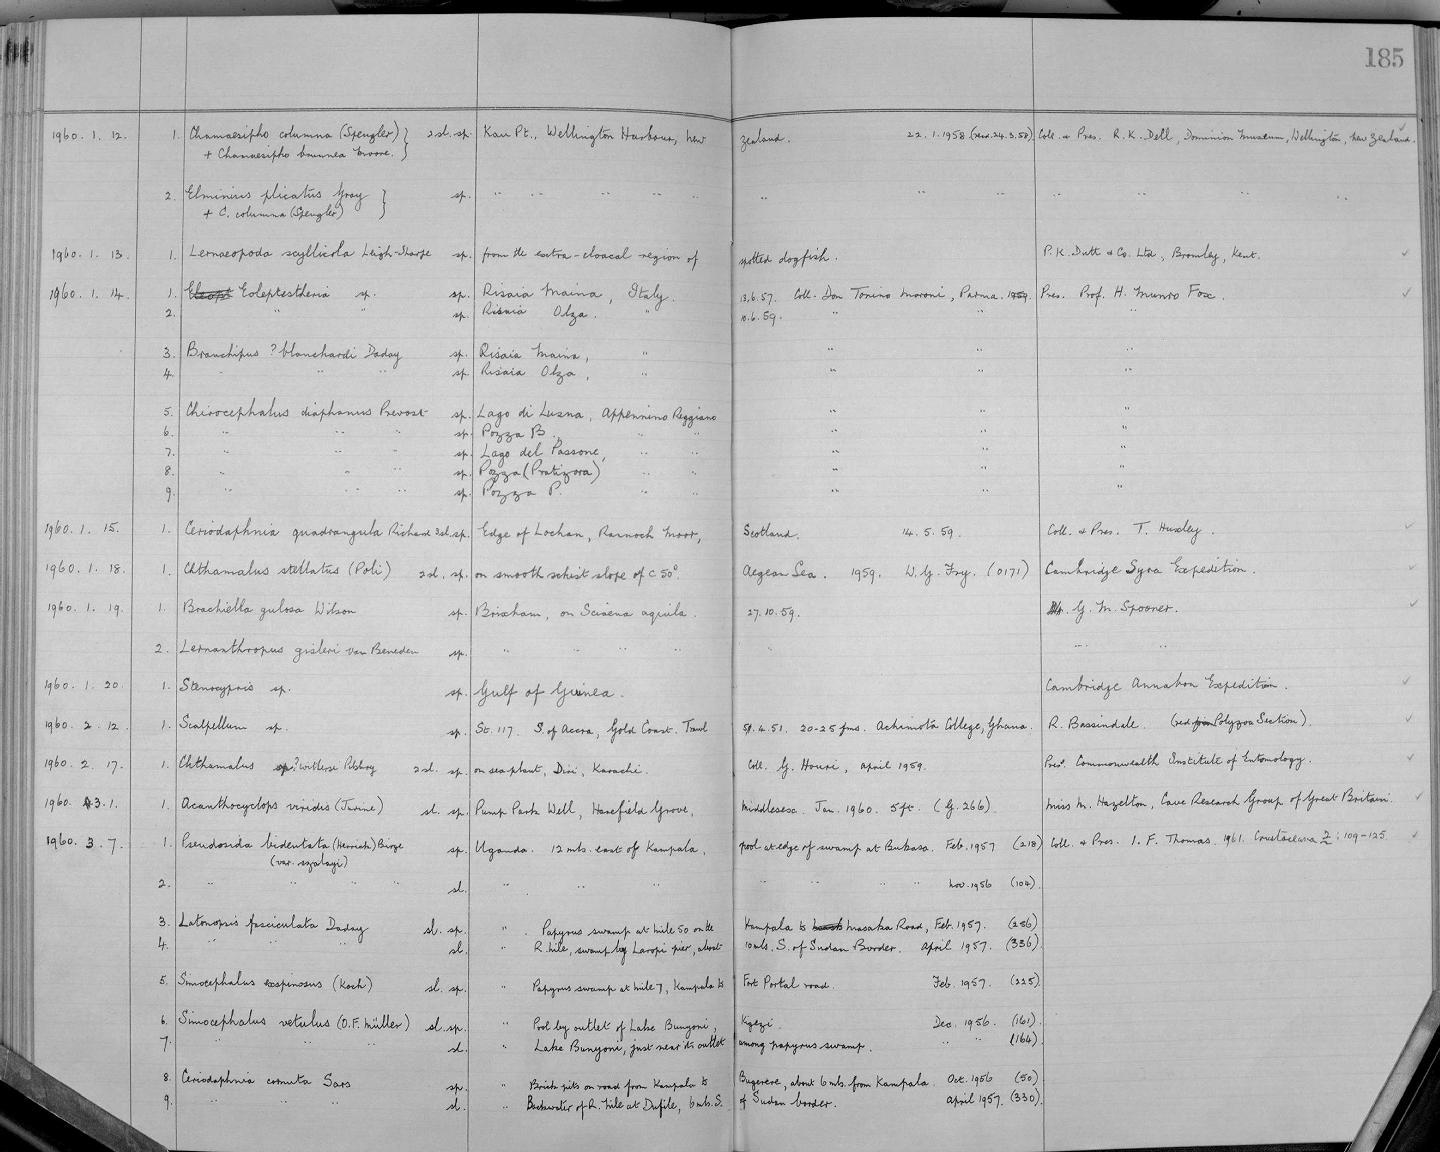 185
1960. 1. 12. 1. Chamaesipho columna (Spengler) } 2 sl. sp. Kau Pt., Wellington Harbour, New Zealand. 22.1.1958 (recd. 24.3.58) Coll. & Pres. R.K. Dell, Dominion Museum, Wellington, New Zealand.
+ Chamaesipho brunnea Moore.
2. Elminius plicatus Gray } sp. " " " " " " " " " " "
+ C. columna (Spengler)
1960. 1. 13. 1. Lernaeopoda scyllicola Leigh-Sharpe sp. from the extra-cloacal region of spotted dogfish. P.K. Dutt & Co. Ltd, Bromley, Kent.
1960. 1. 14. 1. Eoleptestheria sp. sp. Risaia Maina, Italy. 13.6.57. Coll. Don Tonino Moroni, Parma. 1959. Pres. Prof. H. Munro Fox.
2. " " sp. Risaia Olza. " 10.6.59. " " "
3. Branchipus ? blanchardi Daday sp. Risaia Maina, " " " "
4. " " " sp. Risaia Olza, " " " "
5. Chirocephalus diaphanus Prevost sp. Lago di Lusna, Appennino Reggiano " " "
6. " " " sp. Pozza B. " " " " "
7. " " " sp. Lago del Passone, " " " " "
8. " " " sp. Pozza (Pratizara) " " " " "
9. " " " sp. Pozza P. " " " " "
1960. 1. 15. 1. Ceriodaphnia quadrangula Richard 3 sl. sp. Edge of Lochan, Rannoch Moor, Scotland. 14.5.59. Coll. & Pres. T. Huxley.
1960. 1. 18. 1. Chthamalus stellatus (Poli) 2 sl. sp. on smooth schist slope of c 50°. Aegean Sea. 1959. W.G. Fry. (0171) Cambridge Syra Expedition.
1960. 1. 19. 1. Brachiella gulosa Wilson sp. Brixham, on Sciaena aquila. 27.10.59. G.M. Spooner.
2. Lernanthropus gisleri van Beneden sp. " " " " " "
1960. 1. 20. 1. Stenocypris sp. sp. Gulf of Guinea. Cambridge Annabon Expedition.
1960. 2. 12. 1. Scalpellum sp. sp. St. 117. S. of Accra, Gold Coast. Trawl 4.51. 20-25 fms. Achimota College, Ghana. R. Bassindale. (recd from Polyzoa Section).
1960. 2. 17. 1. Chthamalus sp. ? withersi Pilsbry 2 sl. sp. on seaplant, Diri, Karachi. Coll. G. Houri, April 1959. Pres. Commonwealth Institute of Entomology.
1960. 3. 1. 1. Acanthocyclops viridis (Jurine) sl. sp. Pump Park Well, Harefield Grove, Middlesex. Jan. 1960. 5ft. (G.266). Miss M. Hazelton, Cave Research Group of Great Britain.
1960. 3. 7. 1. Pseudosida bidentata (Herrick) Birge sp. Uganda. 12 mls. east of Kampala, pool at edge of swamp at Bukasa. Feb. 1957 (218) Coll. & Pres. I.F. Thomas. 1961. Crustaceana 2 : 109-125
(var. szalayi)
2. " " " " sl. " " " " " " Nov. 1956 (104).
3. Latonopsis fasciculata Daday sl. sp. " Papyrus swamp at mile 50 on the Kampala to Masaka Road, Feb. 1957. (256)
4. " " " sl. " R. Nile, swamp by Laropi pier, about 10 mls. S. of Sudan Border. April 1957. (336)
5. Simocephalus exspinosus (Koch) sl. sp. " Papyrus swamp at mile 7, Kampala to Fort Portal road. Feb. 1957. (225).
6. Simocephalus vetulus (O.F. Müller) sl. sp. " Pool by outlet of Lake Bunyoni, Kigezi. Dec. 1956. (161).
7. " " " sl. " Lake Bunyoni, just near its outlet among papyrus swamp. " " (164)
8. Ceriodaphnia cornuta Sars sp. " Brick pits on road from Kampala to Bugerere, about 6 mls. from Kampala. Oct. 1956 (50)
9. " " " sl. " Backwater of R. Nile at Dufile, 6 mls. S. of Sudan border. April 1957. (330).